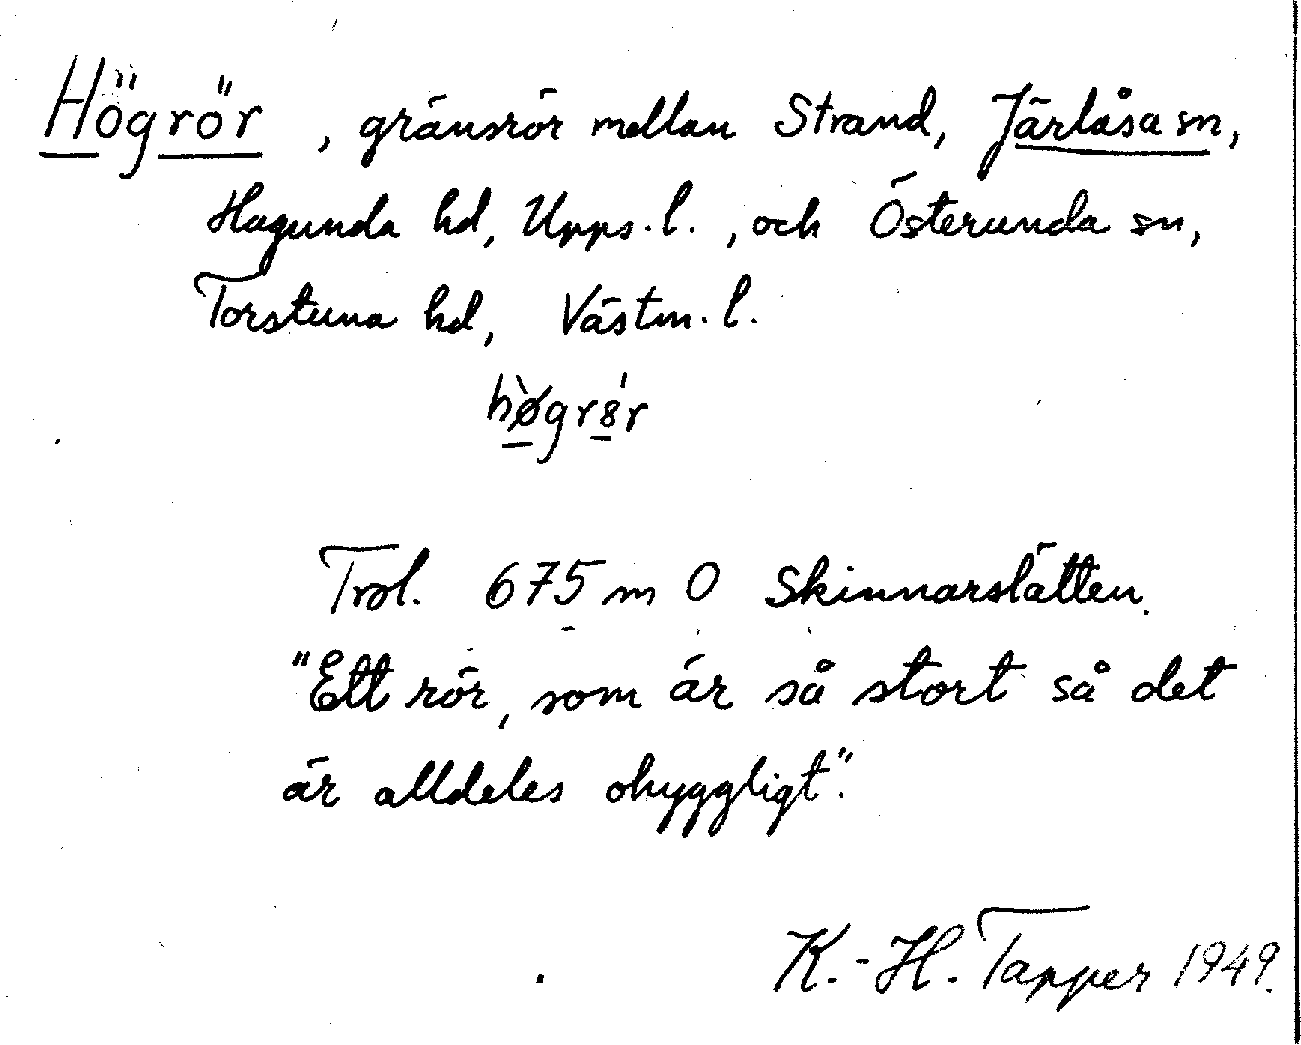 Högrör, gränsrör mellan Strand, Järlåsa sn,
Hagunda hd, Upps. l., och Österunda sn,
Torstuna hd, Västm. l.
hø̀grȣ́r
Trol. 675 m O Skinnarslätten.
"Ett rör, som är så stort så det
är alldeles ohyggligt".
K.-H. Tapper 1949.